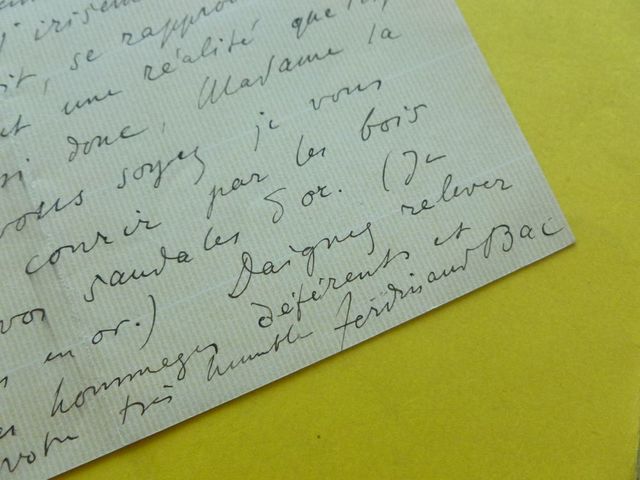 irisem
it, se rappro
t une réalité que
si donc, Madame la
vous soyez, je vous
courir par les bois
vos sandales d'or. (Je
en or.) Daignez relever
hommages déférents et
votre très humble Ferdinand Bac